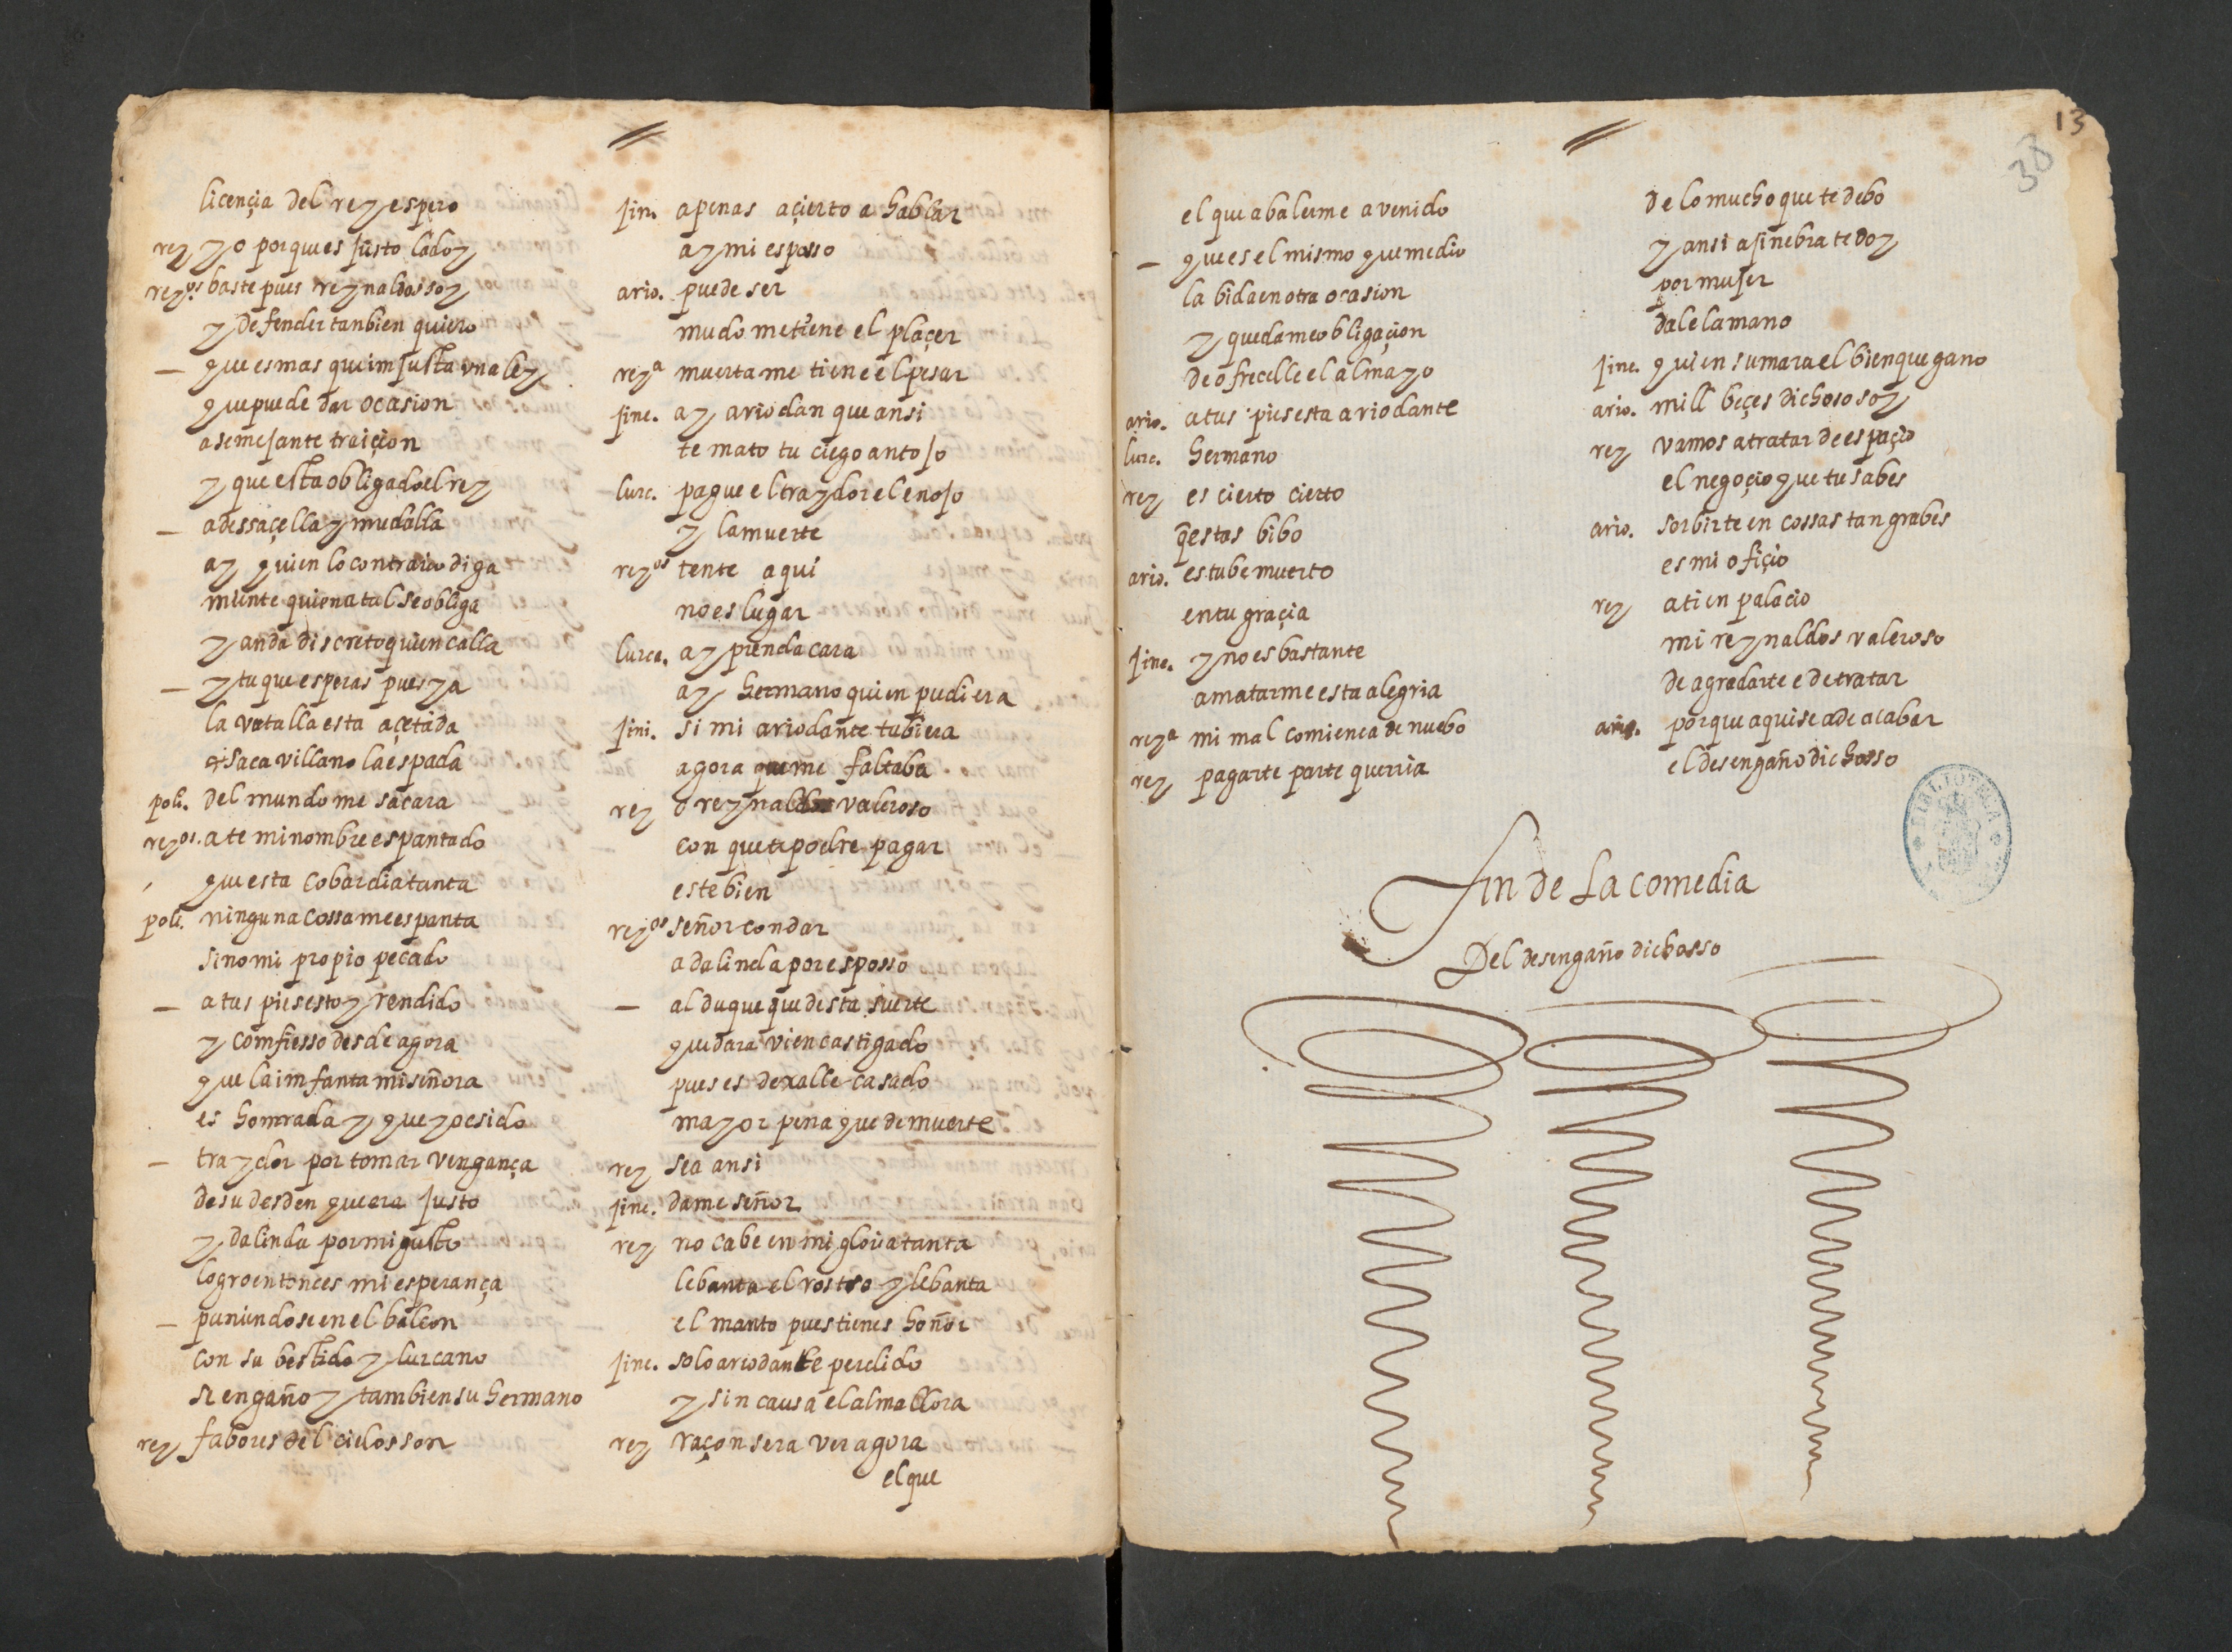 licençia del rey espero
rey yo porque es justo la doy
reyos baste pues reynaldos soy
y defender tanbien quiero
que es mas que imjusta vna ley
que puede dar ocasion
a semejante traiçion
y que esta obligado el rey
a dessaçella y mudalla
ay quien lo contraio diga
miente quien a tal se obliga
y anda discreto quien calla
y tu que esperas pues ya
la vatalla esta açetada
saca villano la espada
poli. del mundo me sacara
reyos. a te mi nombre espantado
que esta cobardia tanta
poli. ninguna cossa me espanta
sino mi propio pecado
a tus pies estoy rendido
y comfiesso desde agora
que la imfanta mi señora
es homrrada y que yo e sido
traydor por tomar vengança
de su desden que era justo
y dalinda por mi gusto
logro entonces mi esperança
puniendose en el balcon
con su bestido y lurcano
se engaño y tambien su hermano
rey fabores del cielos son
jin. apenas açierto a hablar
ay mi esposso
ario. puede ser
mudo me tiene el plaçer
reya muerta me tiene el pesar
jine. ay ariodan que ansi
te mato tu ciego antojo
lurc. pague el traydor el enojo
y la muerte
reyos tente aqui
no es lugar
lurca. ay prenda cara
ay hermano quien pudiera
jini. si mi ariodante tubiera
agora que me faltaba
rey o reynaldos valeroso
con que te podre pagar
este bien
reyos señor con dar
a dalinda por esposso
al duque que desta suerte
quedara vien castigado
pues es dexalle casado
mayor pena que de muerte
rey sea ansi
jine. dame señor
rey no cabe en mi gloria tanta
lebanta el rostro y lebanta
el manto pues tienes honor
jine. solo ariodante perdido
y sin causa el alma llora
rey raçon sera ver agora
el que
13
38
el que a balerme a venido
que es el mismo que me dio
la bida en otra ocasion
y queda me obligaçion
de ofrecelle el alma yo
ario. a tus pies esta ariodante
lurc. hermano
rey es cierto cierto
q̃ estas bibo
ario. estube muerto
en tu graçia
jine. y no es bastante
a matarme esta alegria
reya mi mal comienca de nuebo
rey pagarte parte querria
de lo mucho que te debo
y ansi a jinebra te doy
por mujer
dale la mano
jine. quien sumara el bien que gano
ario. mill beçes dichoso soy
rey vamos a tratar de espaçio
el negoçio que tu sabes
ario. serbirte en cossas tan grabes
es mi ofiçio
rey a ti en palacio
mi reynaldos valeroso
de agradarte e de tratar
ario. porque aqui se a de acabar
el desengaño dichosso
fin de La comedia
Del desengaño dichosso
BIBLIOTECA